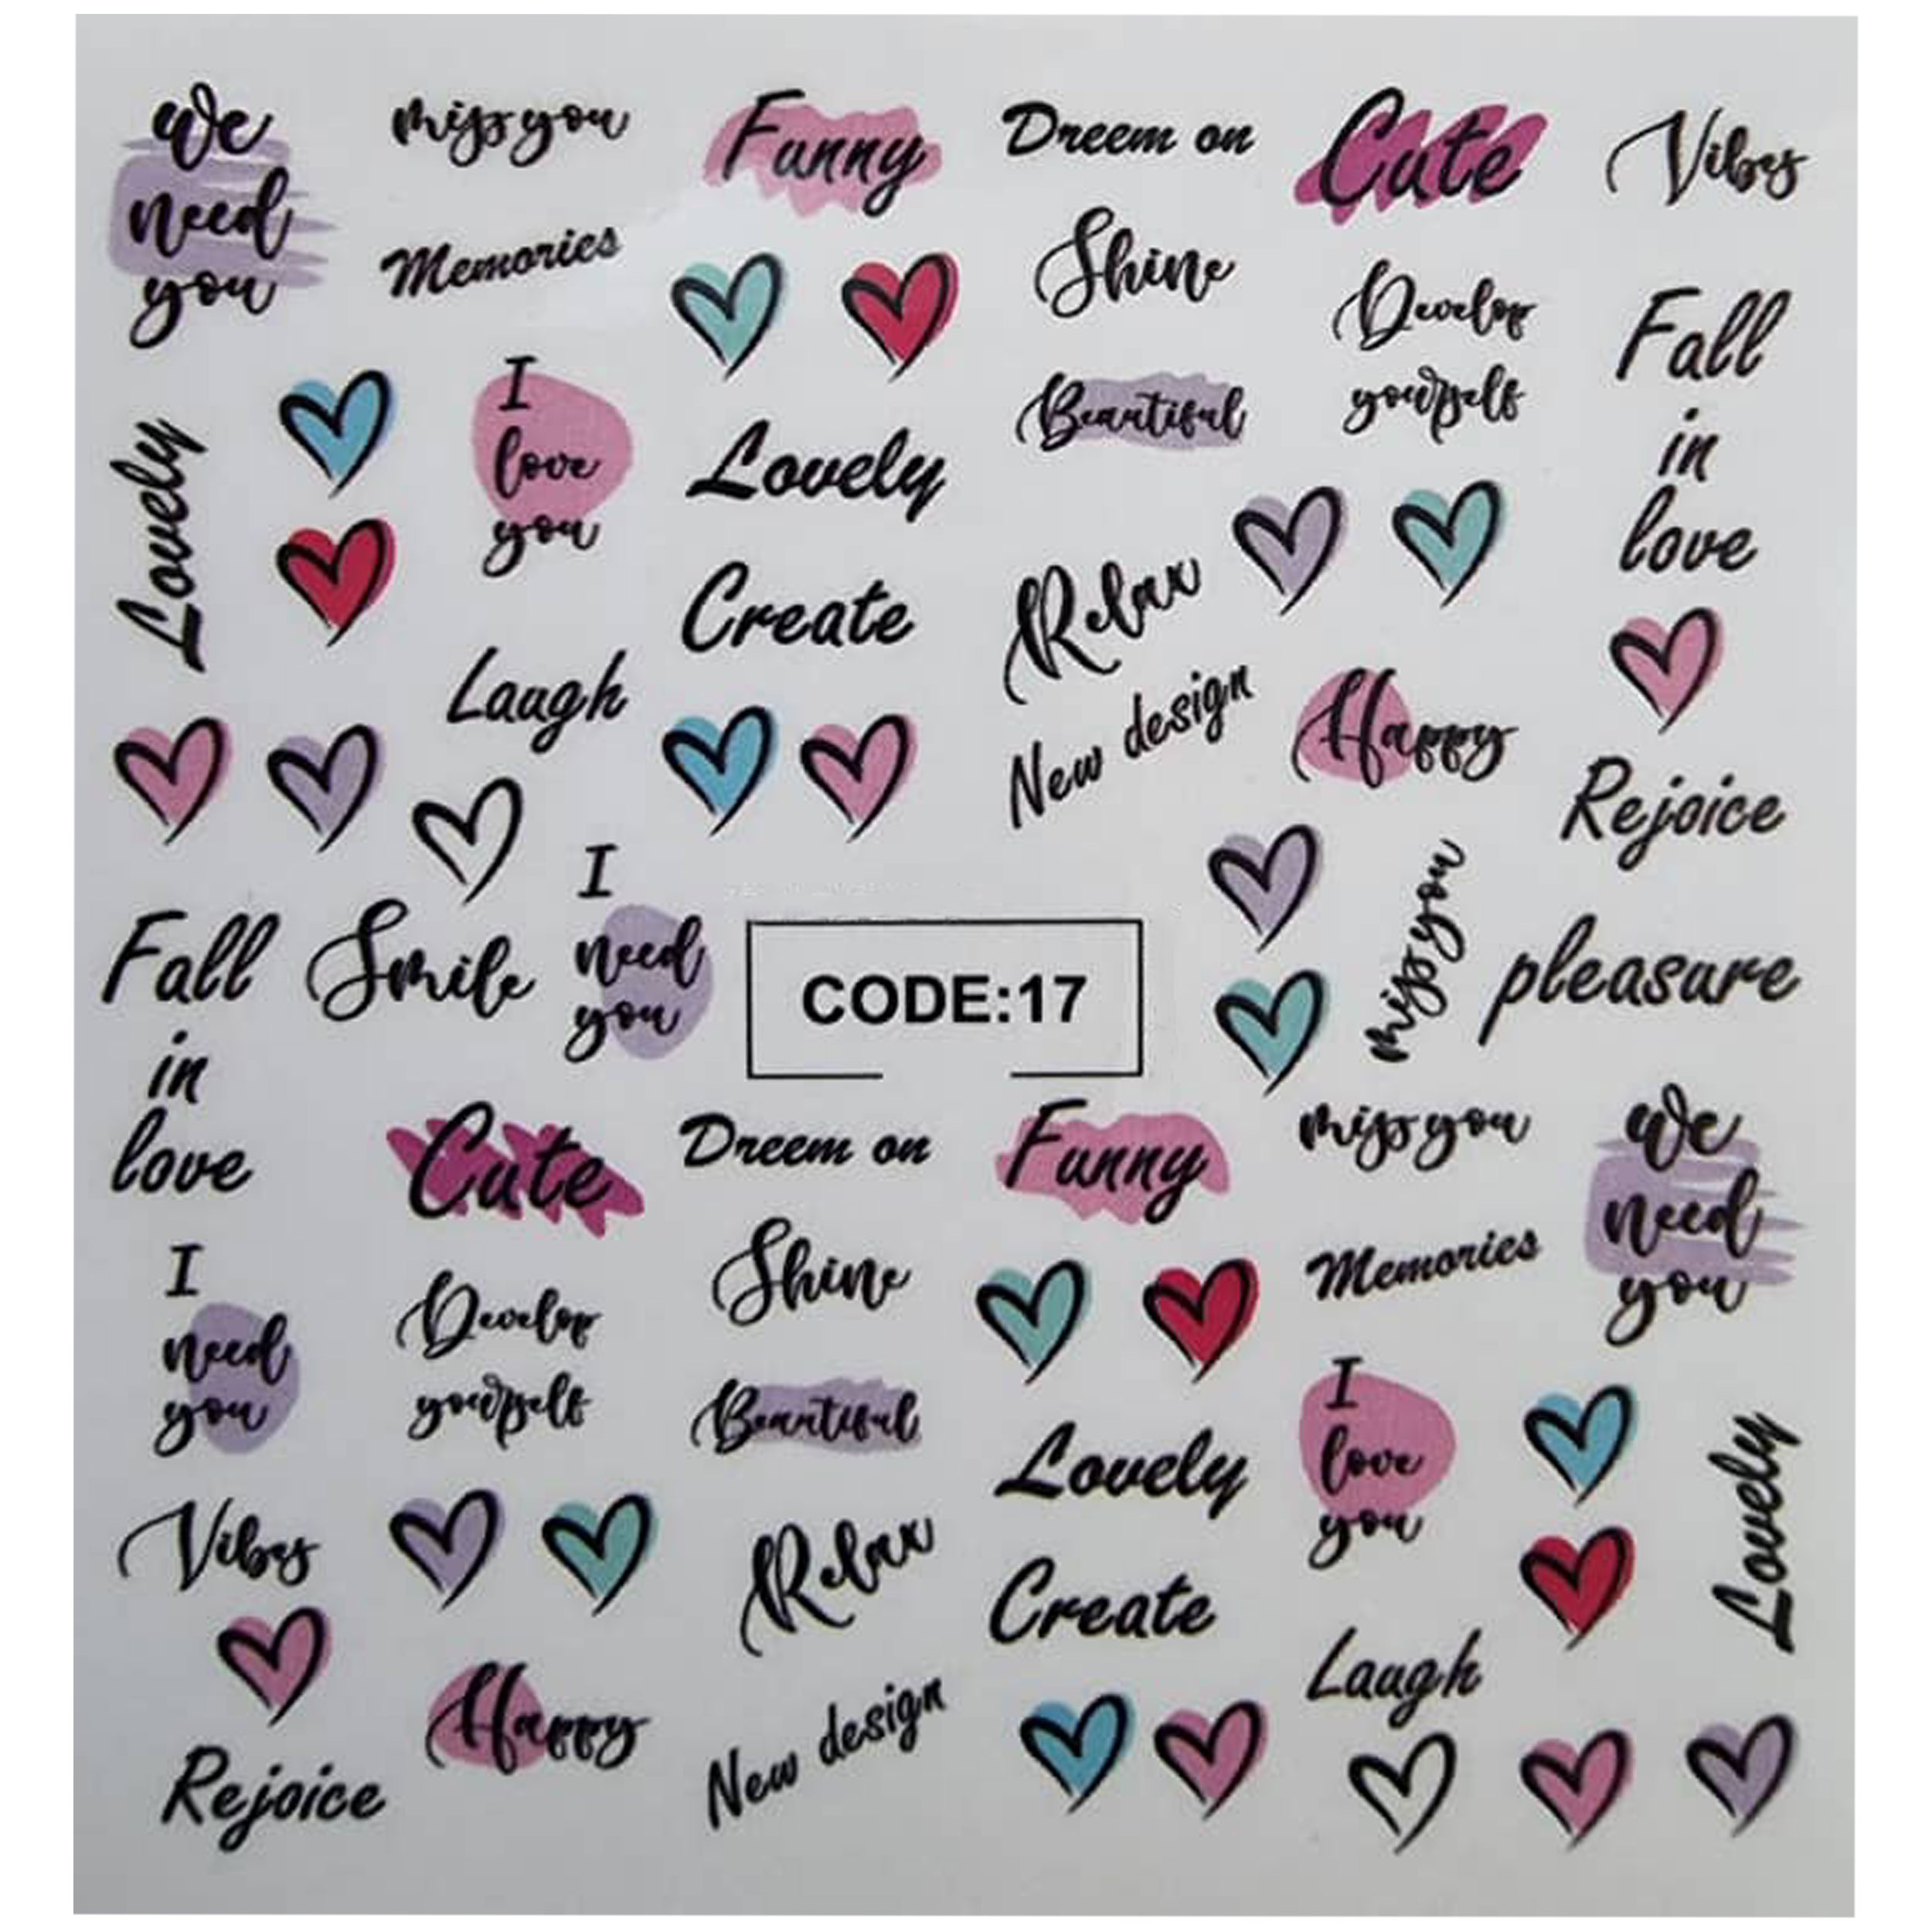 we
need
you
miss you
Funny
Dreem on
Cute
Vibes
Memories
Shine
Develop
yourself
Fall
in
love
Lovely
I
love
you
Lovely
Beautiful
Create
Relax
Laugh
New design
Happy
Rejoice
Fall
in
love
Smile
I
need
you
CODE:17
miss you
pleasure
Cute
Dreem on
Funny
miss you
we
need
you
I
need
you
Develop
yourself
Shine
Memories
Beautiful
Lovely
I
love
you
Lovely
Vibes
Relax
Create
Laugh
Happy
New design
Rejoice